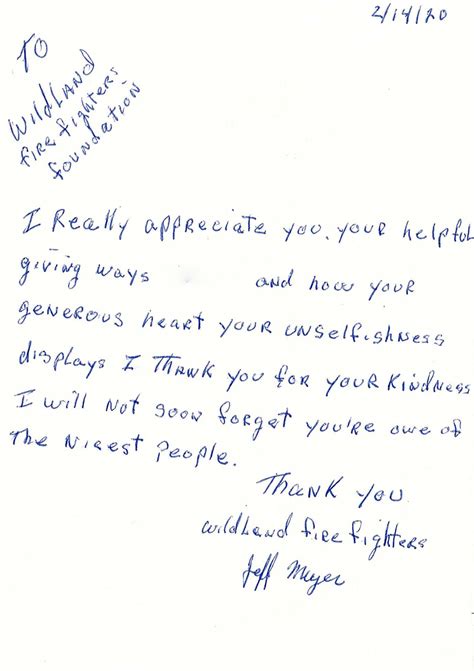 2/14/20
TO
WildLAND
fire fighters
foundation
I Really appreciate you. your helpful
giving ways and how your
generous heart your unselfishness
displays I Thank you for your kindness
I will not soon forget you're one of
The nicest people.
Thank you
wildland fire fighters
Jeff Meyer